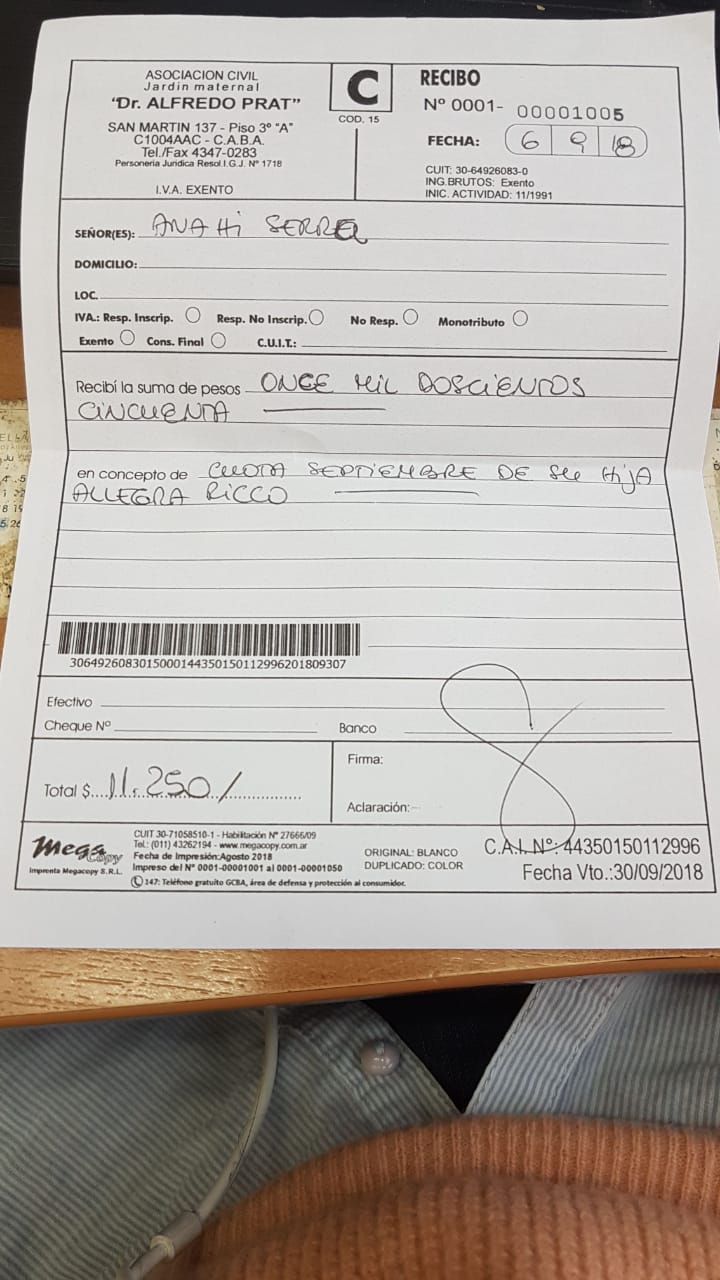 ASOCIACION CIVIL
Jardin maternal
"Dr. ALFREDO PRAT"
SAN MARTIN 137 - Piso 3º "A"
C1004AAC - C.A.B.A.
Tel./Fax 4347-0283
Personeria Juridica Resol I.G.J. Nº 1718
I.V.A. EXENTO
C
COD. 15
RECIBO
Nº 0001- 00001005
FECHA: 6 9 18
CUIT: 30-64926083-0
ING.BRUTOS: Exento
INIC. ACTIVIDAD: 11/1991
SEÑOR(ES): ANAHi SERRER
DOMICILIO:
LOC.
IVA.: Resp. Inscrip. Resp. No Inscrip. No Resp. Monotributo
Exento Cons. Final C.U.I.T.:
Recibí la suma de pesos ONCE MIL DOSCIENTOS
CINCUENTA
en concepto de CUOTA SEPTIEMBRE DE SU HijA
ALLEGRA RICCO
3064926083015000144350150112996201809307
Efectivo
Cheque Nº Banco
Total $ 11.250/
Firma:
Aclaración:
Mega Copy
Imprenta Megacopy S.R.L.
CUIT 30-71058510-1 - Habilitación Nº 27666/09
Tel.: (011) 43262194 - www.megacopy.com.ar
Fecha de Impresión:Agosto 2018
Impreso del Nº 0001-00001001 al 0001-00001050
147: Teléfono gratuito GCBA, área de defensa y protección al consumidor.
ORIGINAL: BLANCO
DUPLICADO: COLOR
C.A.I. Nº: 44350150112996
Fecha Vto.:30/09/2018